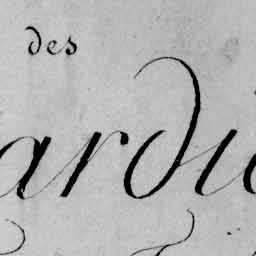 des
ardi